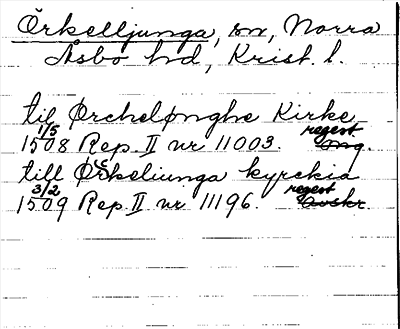 Örkelljunga, sn, Norra
Åsbo hd, Krist. l.
til Ørchelønghe Kirke
1/5 1508 Rep. II nr 11003. regest
till Ørkeliunga kyrckia
3/2 1509 Rep. II nr 11196. regest avskr.